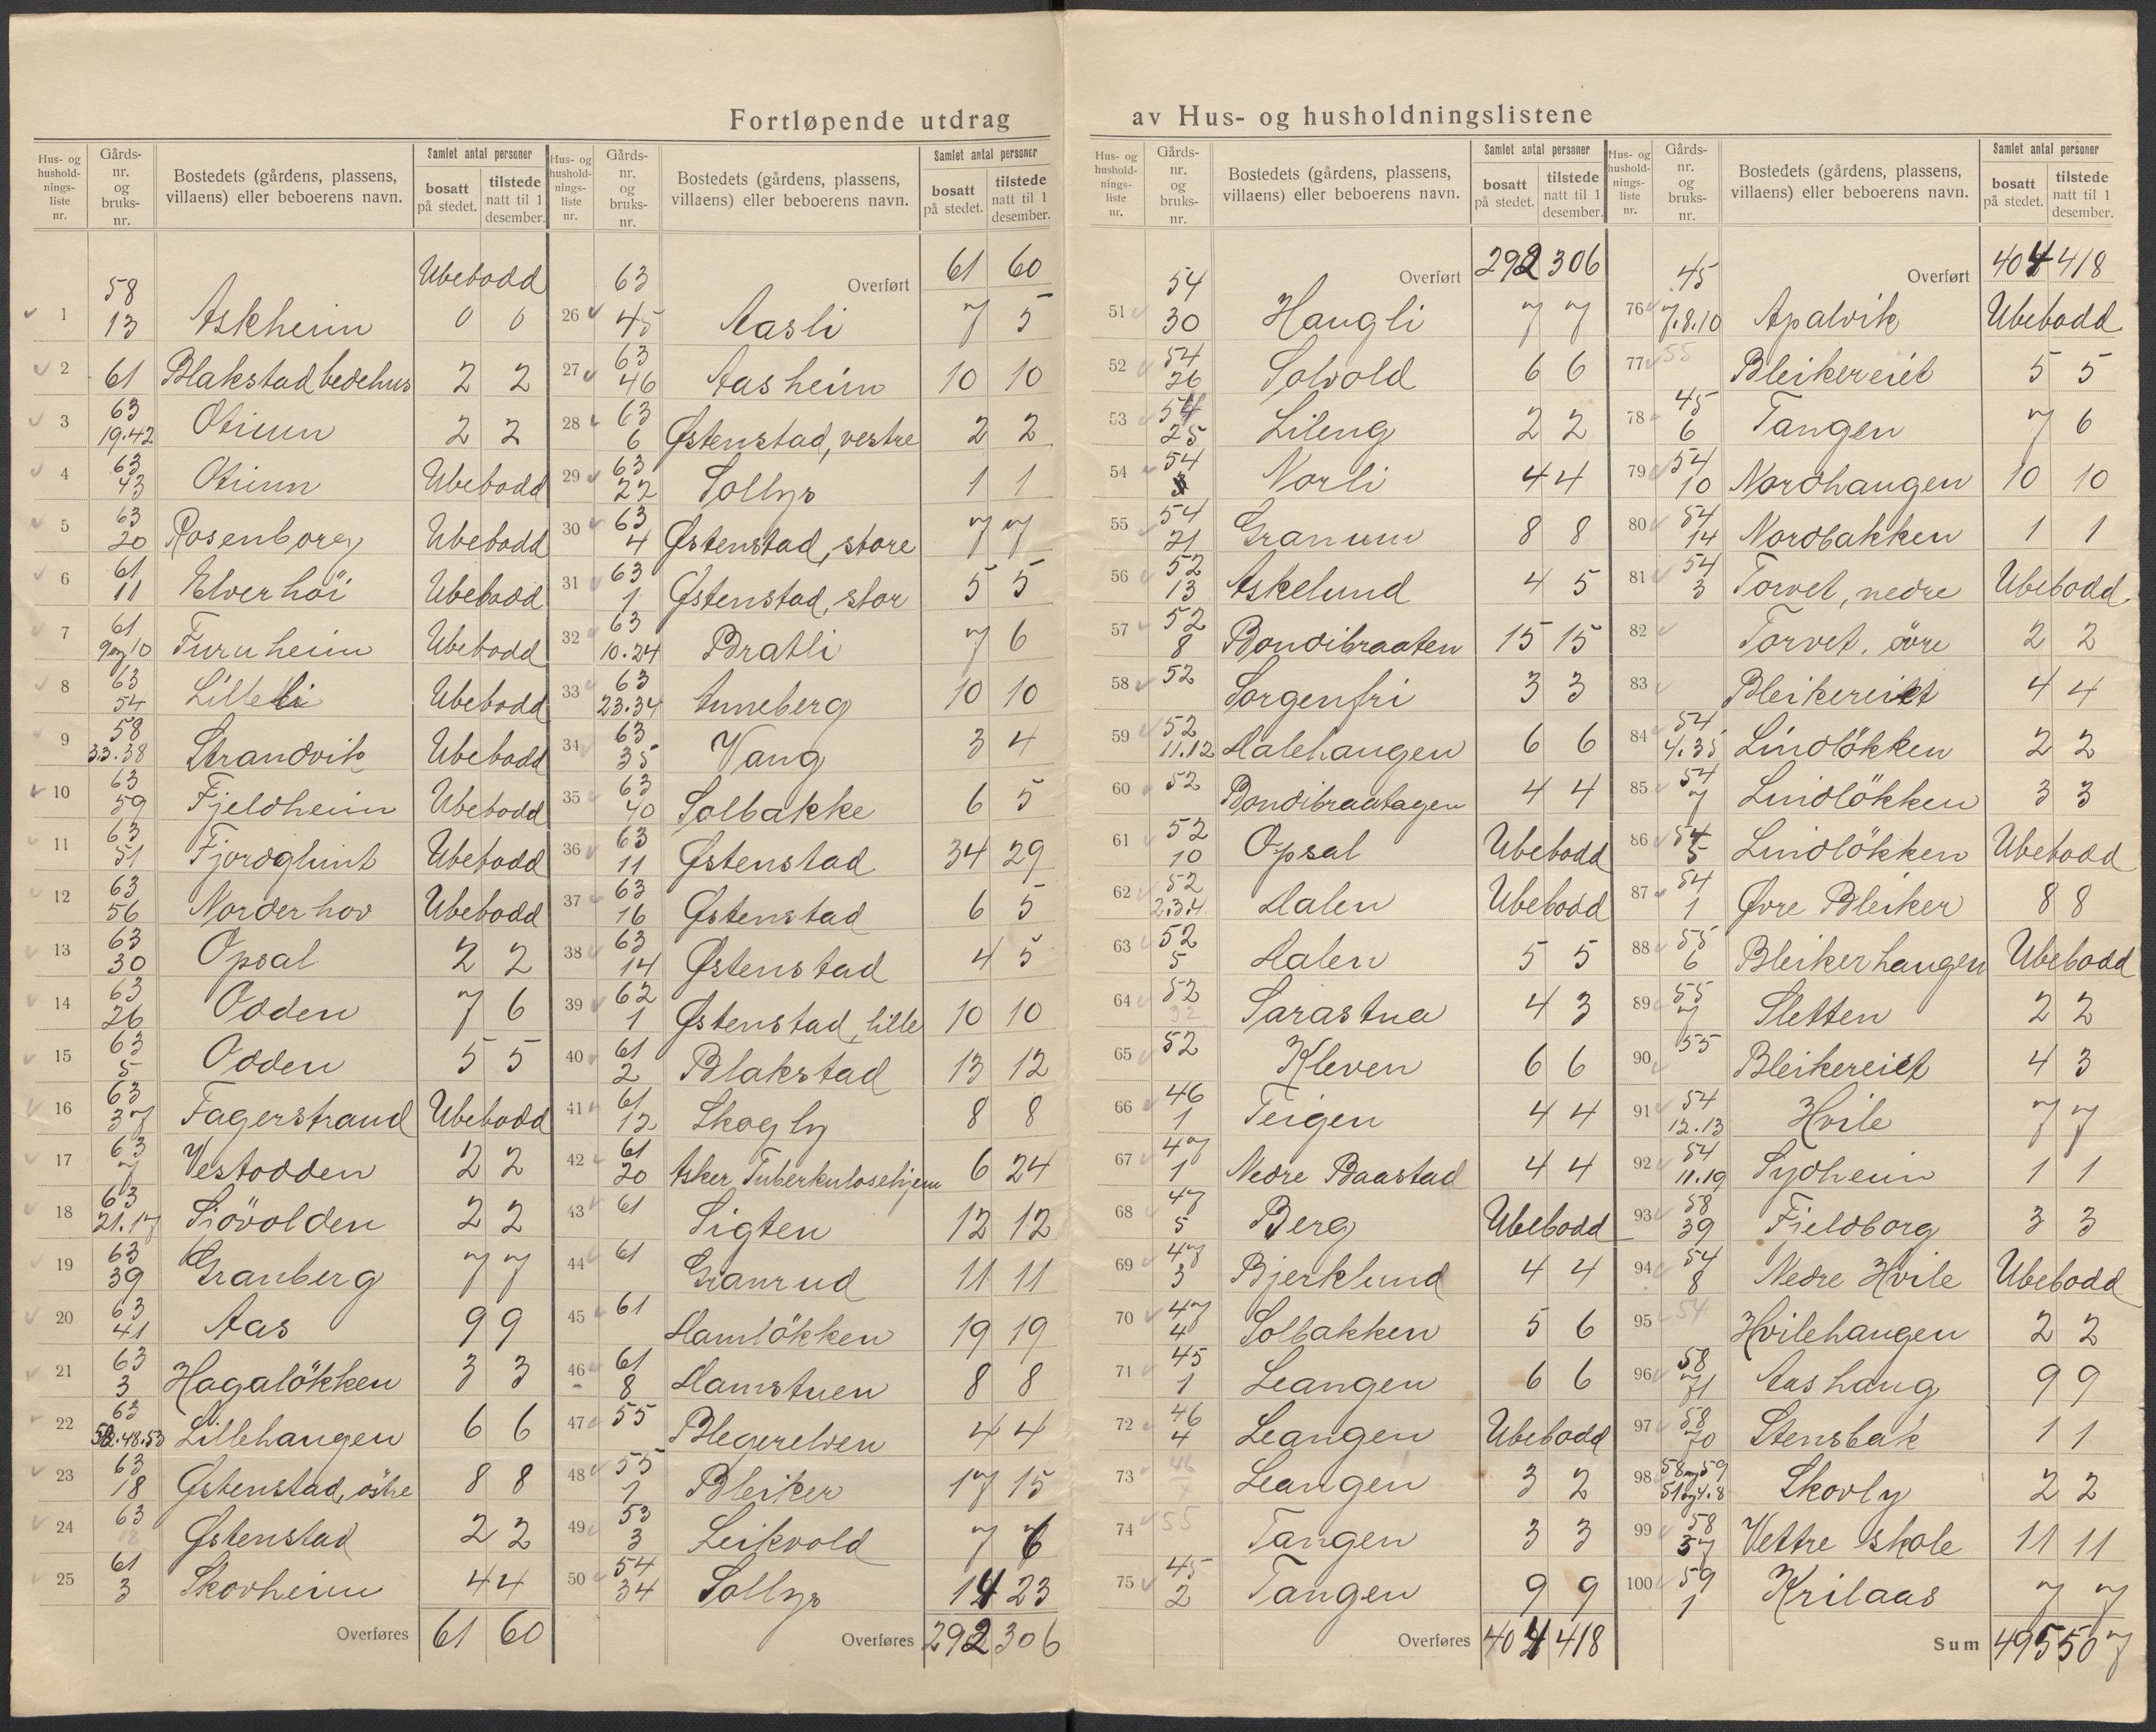 Fortløpende utdrag av Hus- og husholdningslistene
Hus- og husholdnings-liste nr. Gårds-nr. og bruks-nr. Bostedets (gårdens, plassens, villaens) eller beboerens navn. Samlet antal personer bosatt på stedet. tilstede natt til 1 desember.
1 58 13 Askheim Ubebodd 0 0
2 61 Blakstad bedehus 2 2
3 63 19.42 Otium 2 2
4 63 43 Otium Ubebodd
5 63 20 Rosenborg Ubebodd
6 61 11 Elverhöi Ubebodd
7 61 9 og 10 Furuheim Ubebodd
8 63 54 Lilleli Ubebodd
9 58 33.38 Strandvik Ubebodd
10 63 59 Fjeldheim Ubebodd
11 63 51 Fjordglimt Ubebodd
12 63 56 Norderhov Ubebodd
13 63 30 Opsal 2 2
14 63 26 Odden 7 6
15 63 5 Odden 5 5
16 63 37 Fagerstrand Ubebodd
17 63 7 Vestodden 2 2
18 63 21.17 Sjövolden 2 2
19 63 39 Granberg 7 7
20 63 41 Aas 9 9
21 63 3 Hagalökken 3 3
22 63 48.53 Lillehaugen 6 6
23 63 18 Østenstad, östre 8 8
24 63 18 Østenstad 2 2
25 61 3 Skovheim 4 4
Overføres 61 60
Hus- og husholdnings-liste nr. Gårds-nr. og bruks-nr. Bostedets (gårdens, plassens, villaens) eller beboerens navn. Samlet antal personer bosatt på stedet. tilstede natt til 1 desember.
Overført 61 60
26 63 45 Aasli 7 5
27 63 46 Aasheim 10 10
28 63 6 Østenstad, vestre 2 2
29 63 22 Sollys 1 1
30 63 4 Østenstad, store 7 7
31 63 1 Østenstad, stor 5 5
32 63 10.24 Bratli 7 6
33 63 23.34 Anneberg 10 10
34 63 35 Vang 3 4
35 63 40 Solbakke 6 5
36 63 11 Østenstad 34 29
37 63 16 Østenstad 6 5
38 63 14 Østenstad 4 5
39 62 1 Østenstad, lille 10 10
40 61 2 Blakstad 13 12
41 61 12 Skogly 8 8
42 61 20 Asker Tuberkulosehjem 6 24
43 61 Sigten 12 12
44 61 Granrud 11 11
45 61 Hamlökken 19 19
46 61 8 Hamstuen 8 8
47 55 Blegerelven 4 4
48 55 1 Bleiker 17 15
49 53 3 Leikvold 7 6
50 54 34 Sollys 14 23
Overføres 292 306
Hus- og husholdnings-liste nr. Gårds-nr. og bruks-nr. Bostedets (gårdens, plassens, villaens) eller beboerens navn. Samlet antal personer bosatt på stedet. tilstede natt til 1 desember.
Overført 292 306
51 54 30 Haugli 7 7
52 54 26 Solvold 6 6
53 54 25 Lileng 2 2
54 54 Norli 4 4
55 54 21 Granum 8 8
56 52 13 Askelund 4 5
57 52 8 Bondibraaten 15 15
58 52 Sorgenfri 3 3
59 52 11.12 Dalehaugen 6 6
60 52 Bondibraatagen 4 4
61 52 10 Opsal Ubebodd
62 52 2.3.4. Dalen Ubebodd
63 52 5 Dalen 5 5
64 52 32 Sarastua 4 3
65 52 Kleven 6 6
66 46 1 Teigen 4 4
67 47 1 Nedre Baastad 4 4
68 47 5 Berg Ubebodd
69 47 3 Bjerklund 4 4
70 47 4 Solbakken 5 6
71 45 1 Leangen 6 6
72 46 4 Leangen Ubebodd
73 46 Leangen 3 2
74 55 Tangen 3 3
75 45 2 Tangen 9 9
Overføres 404 418
Hus- og husholdnings-liste nr. Gårds-nr. og bruks-nr. Bostedets (gårdens, plassens, villaens) eller beboerens navn. Samlet antal personer bosatt på stedet. tilstede natt til 1 desember.
Overført 404 418
76 45 7.8.10 Apalvik Ubebodd
77 55 Bleikereiet 5 5
78 45 6 Tangen 7 6
79 54 10 Nordhaugen 10 10
80 54 14 Nordbakken 1 1
81 54 3 Torvet, nedre Ubebodd
82 Torvet, övre 2 2
83 Bleikereiet 4 4
84 54 4.35 Lindlökken 2 2
85 54 7 Lindlökken 3 3
86 54 5 Lindlökken Ubebodd
87 54 1 Øvre Bleiker 8 8
88 55 6 Bleikerhaugen Ubebodd
89 55 7 Sletten 2 2
90 55 Bleikereiet 4 3
91 54 12.13 Hvile 7 7
92 54 11.19 Sydheim 1 1
93 58 39 Fjeldborg 3 3
94 54 8 Nedre Hvile Ubebodd
95 54 Hvilehaugen 2 2
96 58 71 Aashaug 9 9
97 58 70 Stensbak 1 1
98 58 og 59 51 og 4.8 Skovly 2 2
99 58 57 Vettre skole 11 11
100 59 1 Krilaas 7 7
Sum 495 507